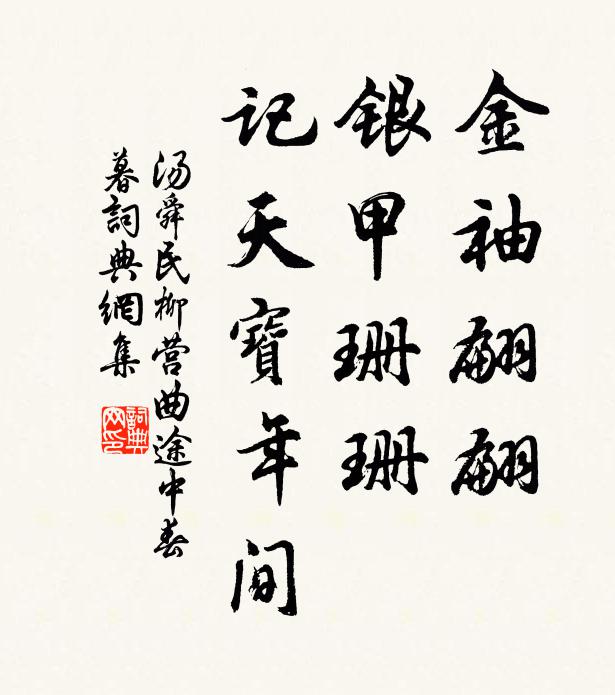 金袖翩翩
银甲珊珊
记天寶年间
汤舜民柳营曲途中春
暮詞典網集
詞典网印